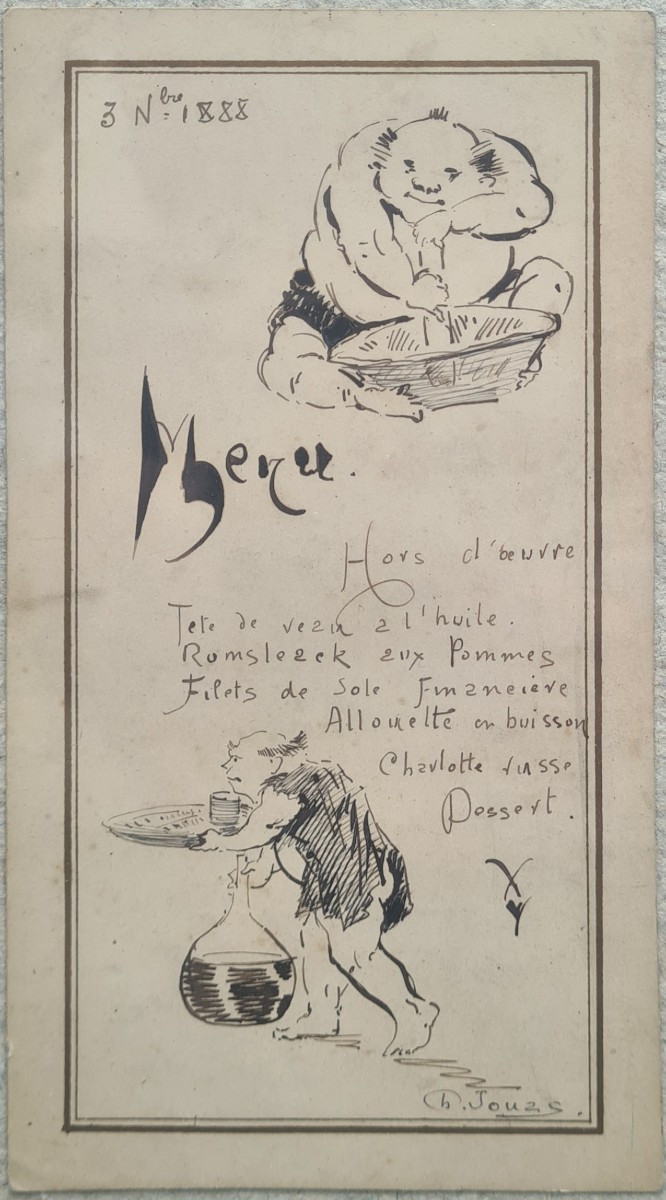 3 Nbre 1888
Menu.
Hors d'œuvre
Tete de veau a l'huile.
Romsteack aux Pommes
Filets de Sole Financière
Allouette en buisson
Charlotte russe
Dessert.